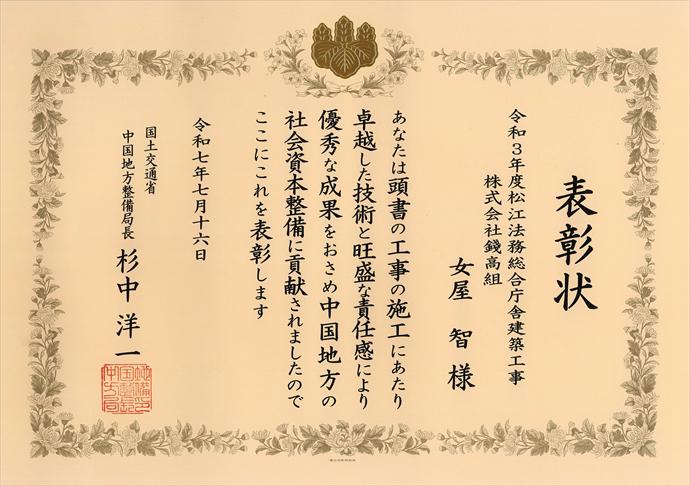 表彰状
令和３年度松江法務総合庁舎建築工事
株式会社錢高組
女屋 智 様
あなたは頭書の工事の施工にあたり
卓越した技術と旺盛な責任感により
優秀な成果をおさめ中国地方の
社会資本整備に貢献されましたので
ここにこれを表彰します
令和七年七月十六日
国土交通省
中国地方整備局長 杉中洋一